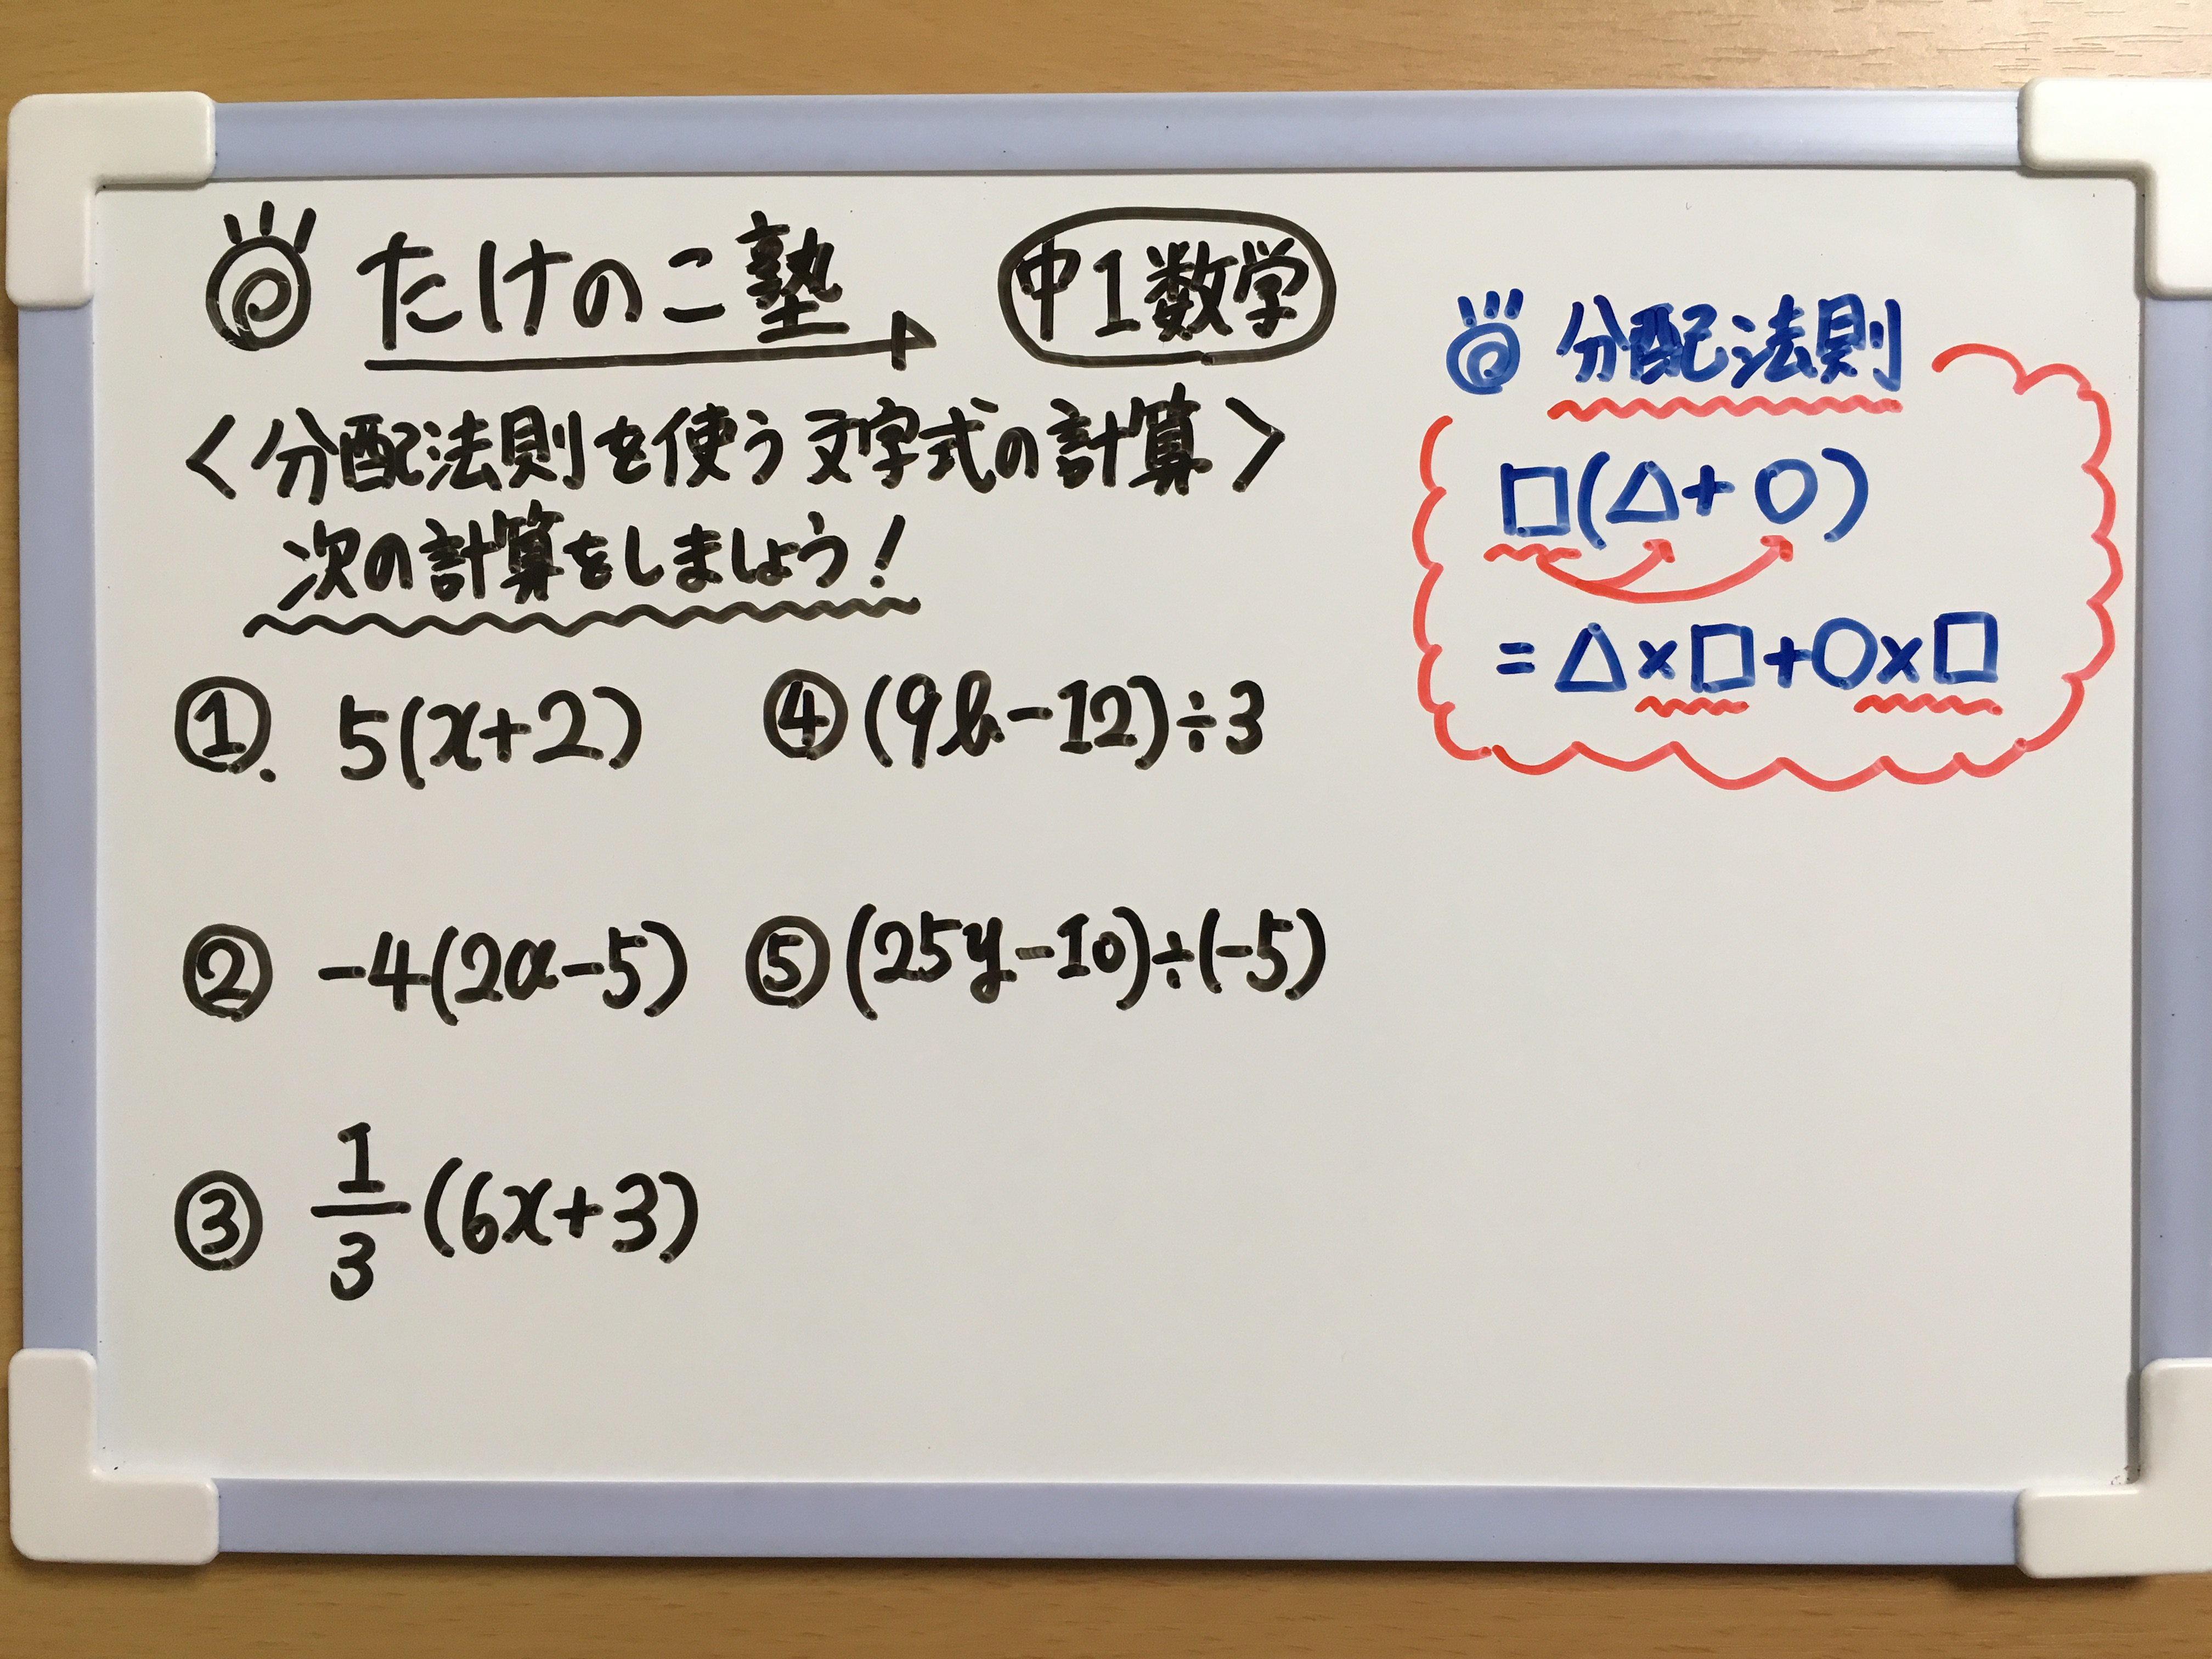 たけのこ塾 中1数学
<分配法則を使う文字式の計算>
次の計算をしましょう!
① 5(x+2)
② -4(2a-5)
③ 1/3(6x+3)
④ (9b-12)÷3
⑤ (25y-10)÷(-5)
分配法則
□(△+○)
=△×□+○×□